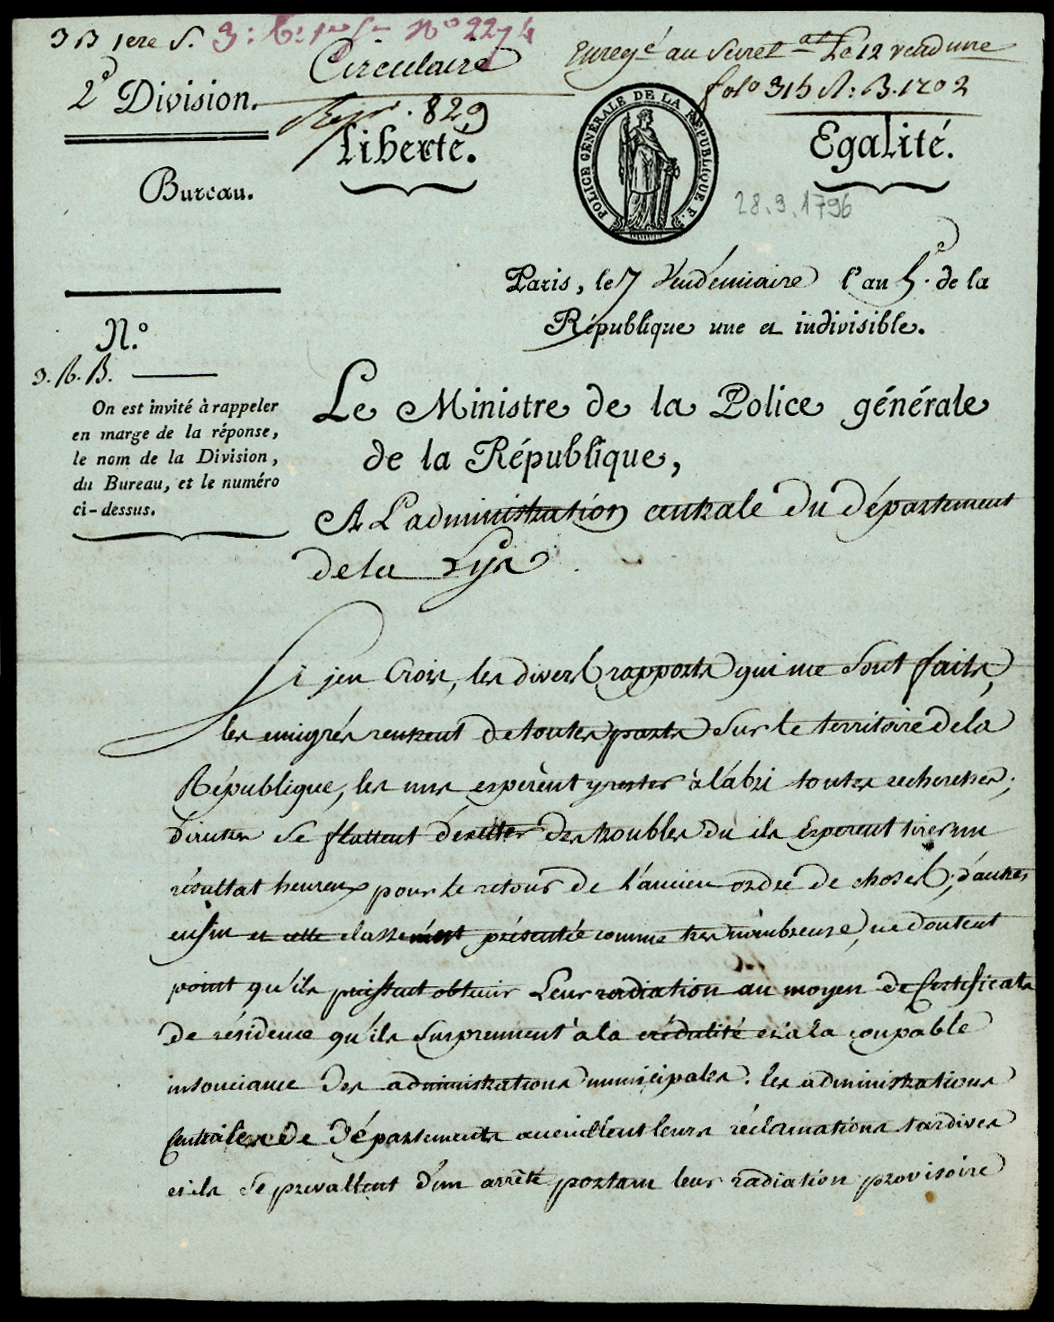 3 B 1ere S. 3: B: 1re Sn No 2274
Circulaire
Enregé au Secretat Le 12 vend une
folo 315 N: B. 1202
2e Division.
Regr. 829
Liberté.
Egalité.
POLICE GÉNÉRALE DE LA RÉPUBLIQUE F.
Bureau.
28.9.1796
Paris, le 7 Vendémiaire l'an 5.e de la
République une et indivisible.
N.o
3. B. B.
On est invité à rappeler
en marge de la réponse,
le nom de la Division,
du Bureau, et le numéro
ci-dessus.
Le Ministre de la Police générale
de la République,
A L'administration centrale du département
de la Lys
Si j'en Crois, les divers rapports qui me Sont faits,
les emigrés rentrent de toutes parts Sur le territoire de la
République, les uns espèrent y rester à l'abri toutes recherches;
d'autres Se flattent d'exciter des troubles du ils Esperent tirer un
résultat heureux pour le retour de l'ancien ordre de choses; d'autres
enfin et cette classe m'est présentée comme tres nombreuse, ne doutent
point qu'ils puissent obtenir Leur radiation au moyen de Certificats
de résidence qu'ils Surprennent à la crédulité et à la coupable
insouciance des administrations municipales. les administrations
Centrales de Départements accueillent leurs réclamations tardives
et ils Se prevallent d'un arrêté portant leur radiation provisoire